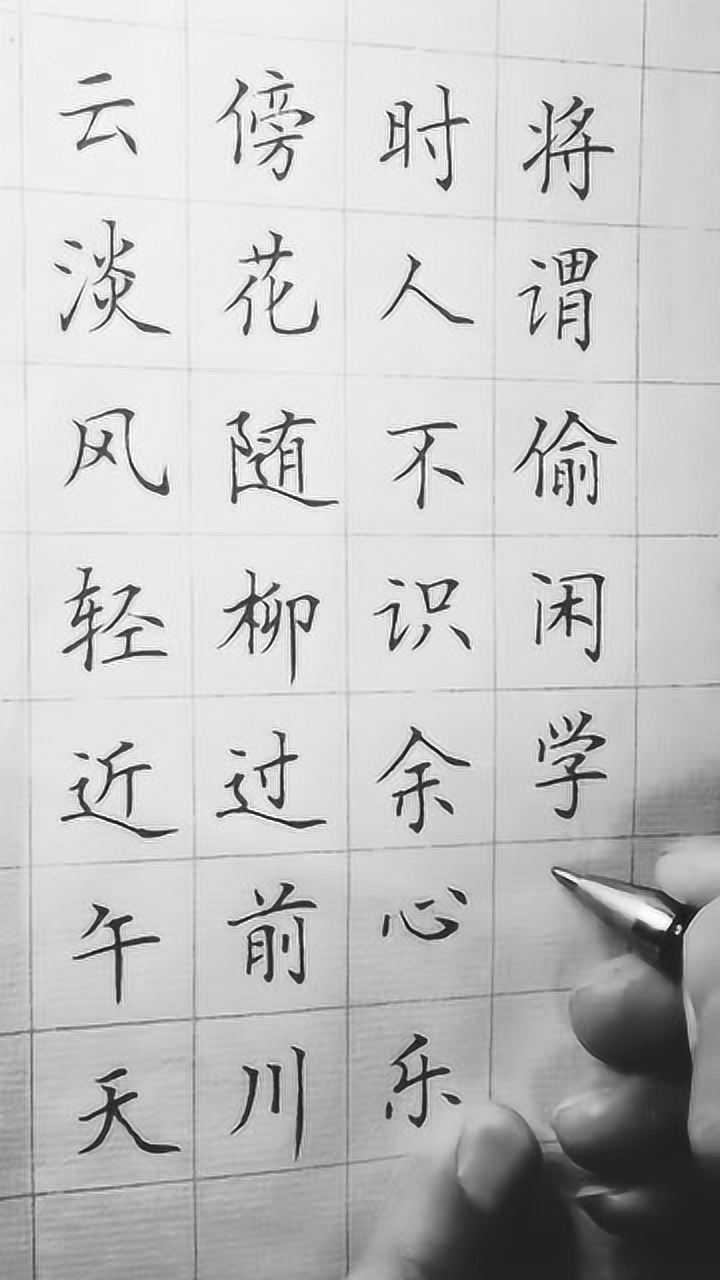 云淡风轻近午天
傍花随柳过前川
时人不识余心乐
将谓偷闲学